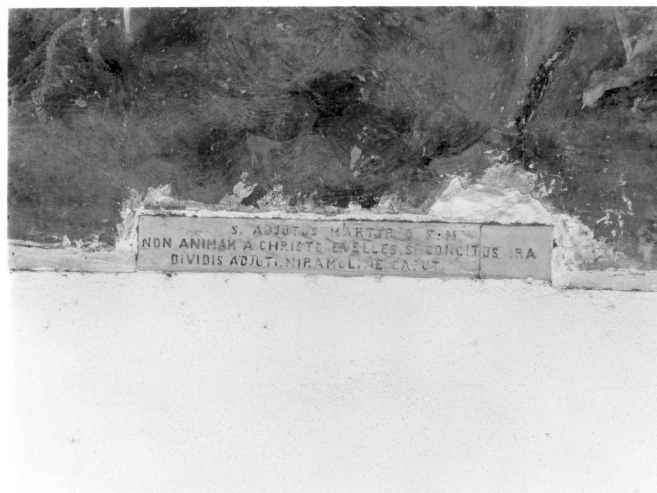 S. ADJUTUS MARTYR O F. M
NON ANIMAM A CHRISTO EVELLES, SI CONCITUS IRA
DIVIDIS ADJUTI, MIRAMOLINE CAPUT